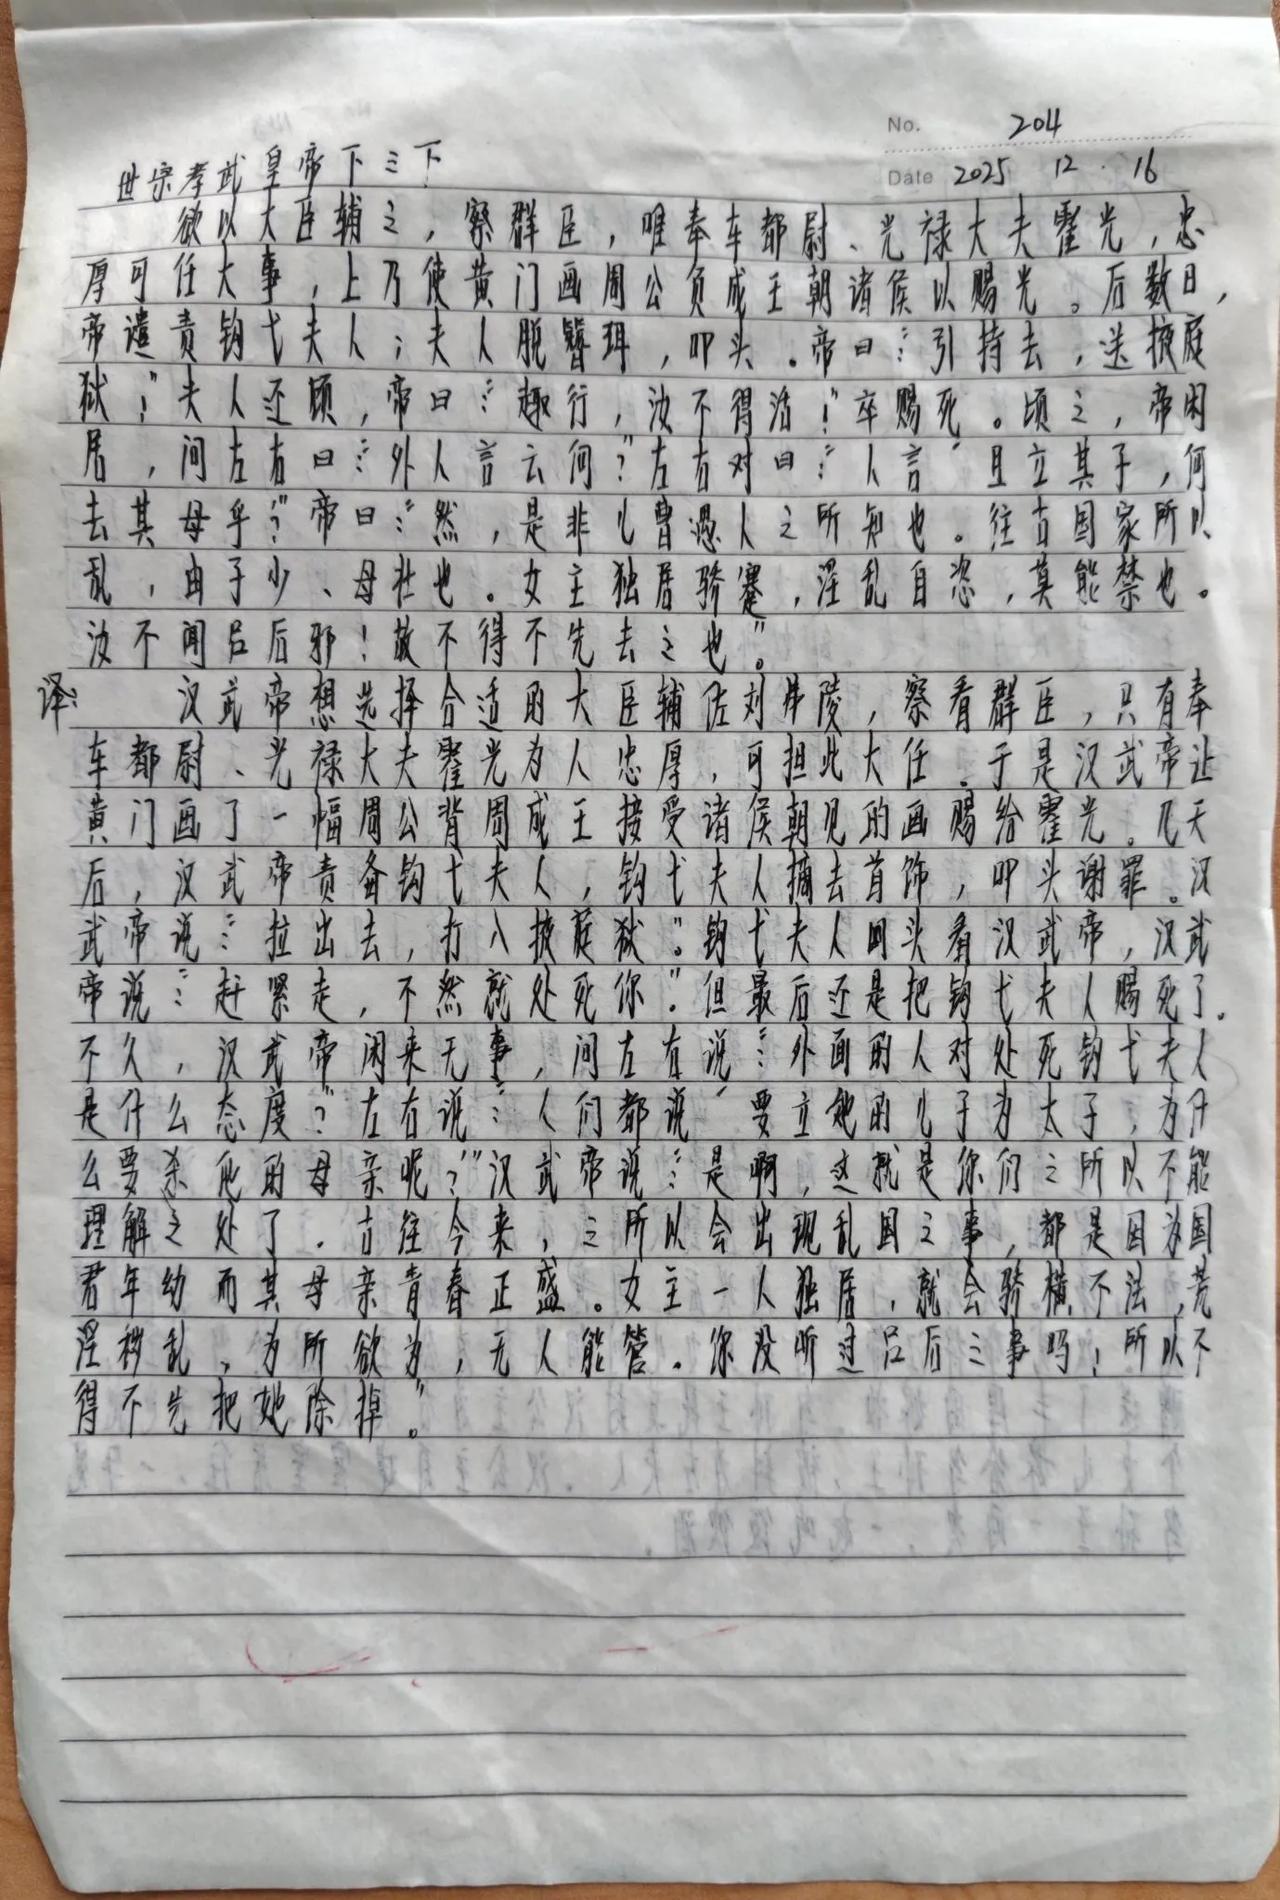 No. 204
世宗孝武皇帝下之下
Date 2025 12 · 16
欲以大臣辅之，察群臣，唯奉车都尉、光禄大夫霍光，忠
厚可任大事，上乃使黄门画周公负成王朝诸侯以赐光。后数日，
帝谴责钩弋夫人；夫人脱簪珥，叩头。帝曰：“引持去，送掖庭
狱！”夫人还顾，帝曰：“趣行，汝不得活！”卒赐死。顷之，帝闲
居，问左右曰：“外人言云何？”左右对曰：“人言‘且立其子，何
去其母乎？’”帝曰：“然，是非儿曹愚人之所知也。往古国家所以
乱，由子少、母壮也。女主独居骄蹇，淫乱自恣，莫能禁也。
汝不闻吕后邪！故不得不先去之也。”
译：汉武帝想选择合适的大臣辅佐刘弗陵，察看群臣，只有奉
车都尉、光禄大夫霍光为人忠厚，可担此大任。于是汉武帝让
黄门画了一幅周公背周成王接受诸侯朝见的画赐给霍光。几天
后，汉武帝责备钩弋夫人，钩弋夫人摘去首饰，叩头谢罪。汉
武帝说：“拉出去，打入掖庭狱。”钩弋夫人回头看汉武帝，汉武
帝说：“赶紧走，不然就处死你”。但最后还是把钩弋夫人赐死了。
不久，汉武帝闲来无事，问左右说：“外面的人对处死钩弋夫人
是什么态度？”左右说：“人们都说‘要立她的儿子为太子，为什
么要杀他的母亲呢？’”汉武帝说：“是啊，这就是你们之所以不能
理解之处了．古往今来，之所以会出现乱国之事，都是因为国
君年幼而其母亲青春正盛。女主一人独居，就会骄横不法，荒
淫秽乱，为所欲为，无人能管。你没听过吕后之事吗！所以不
得不先把她除掉。”